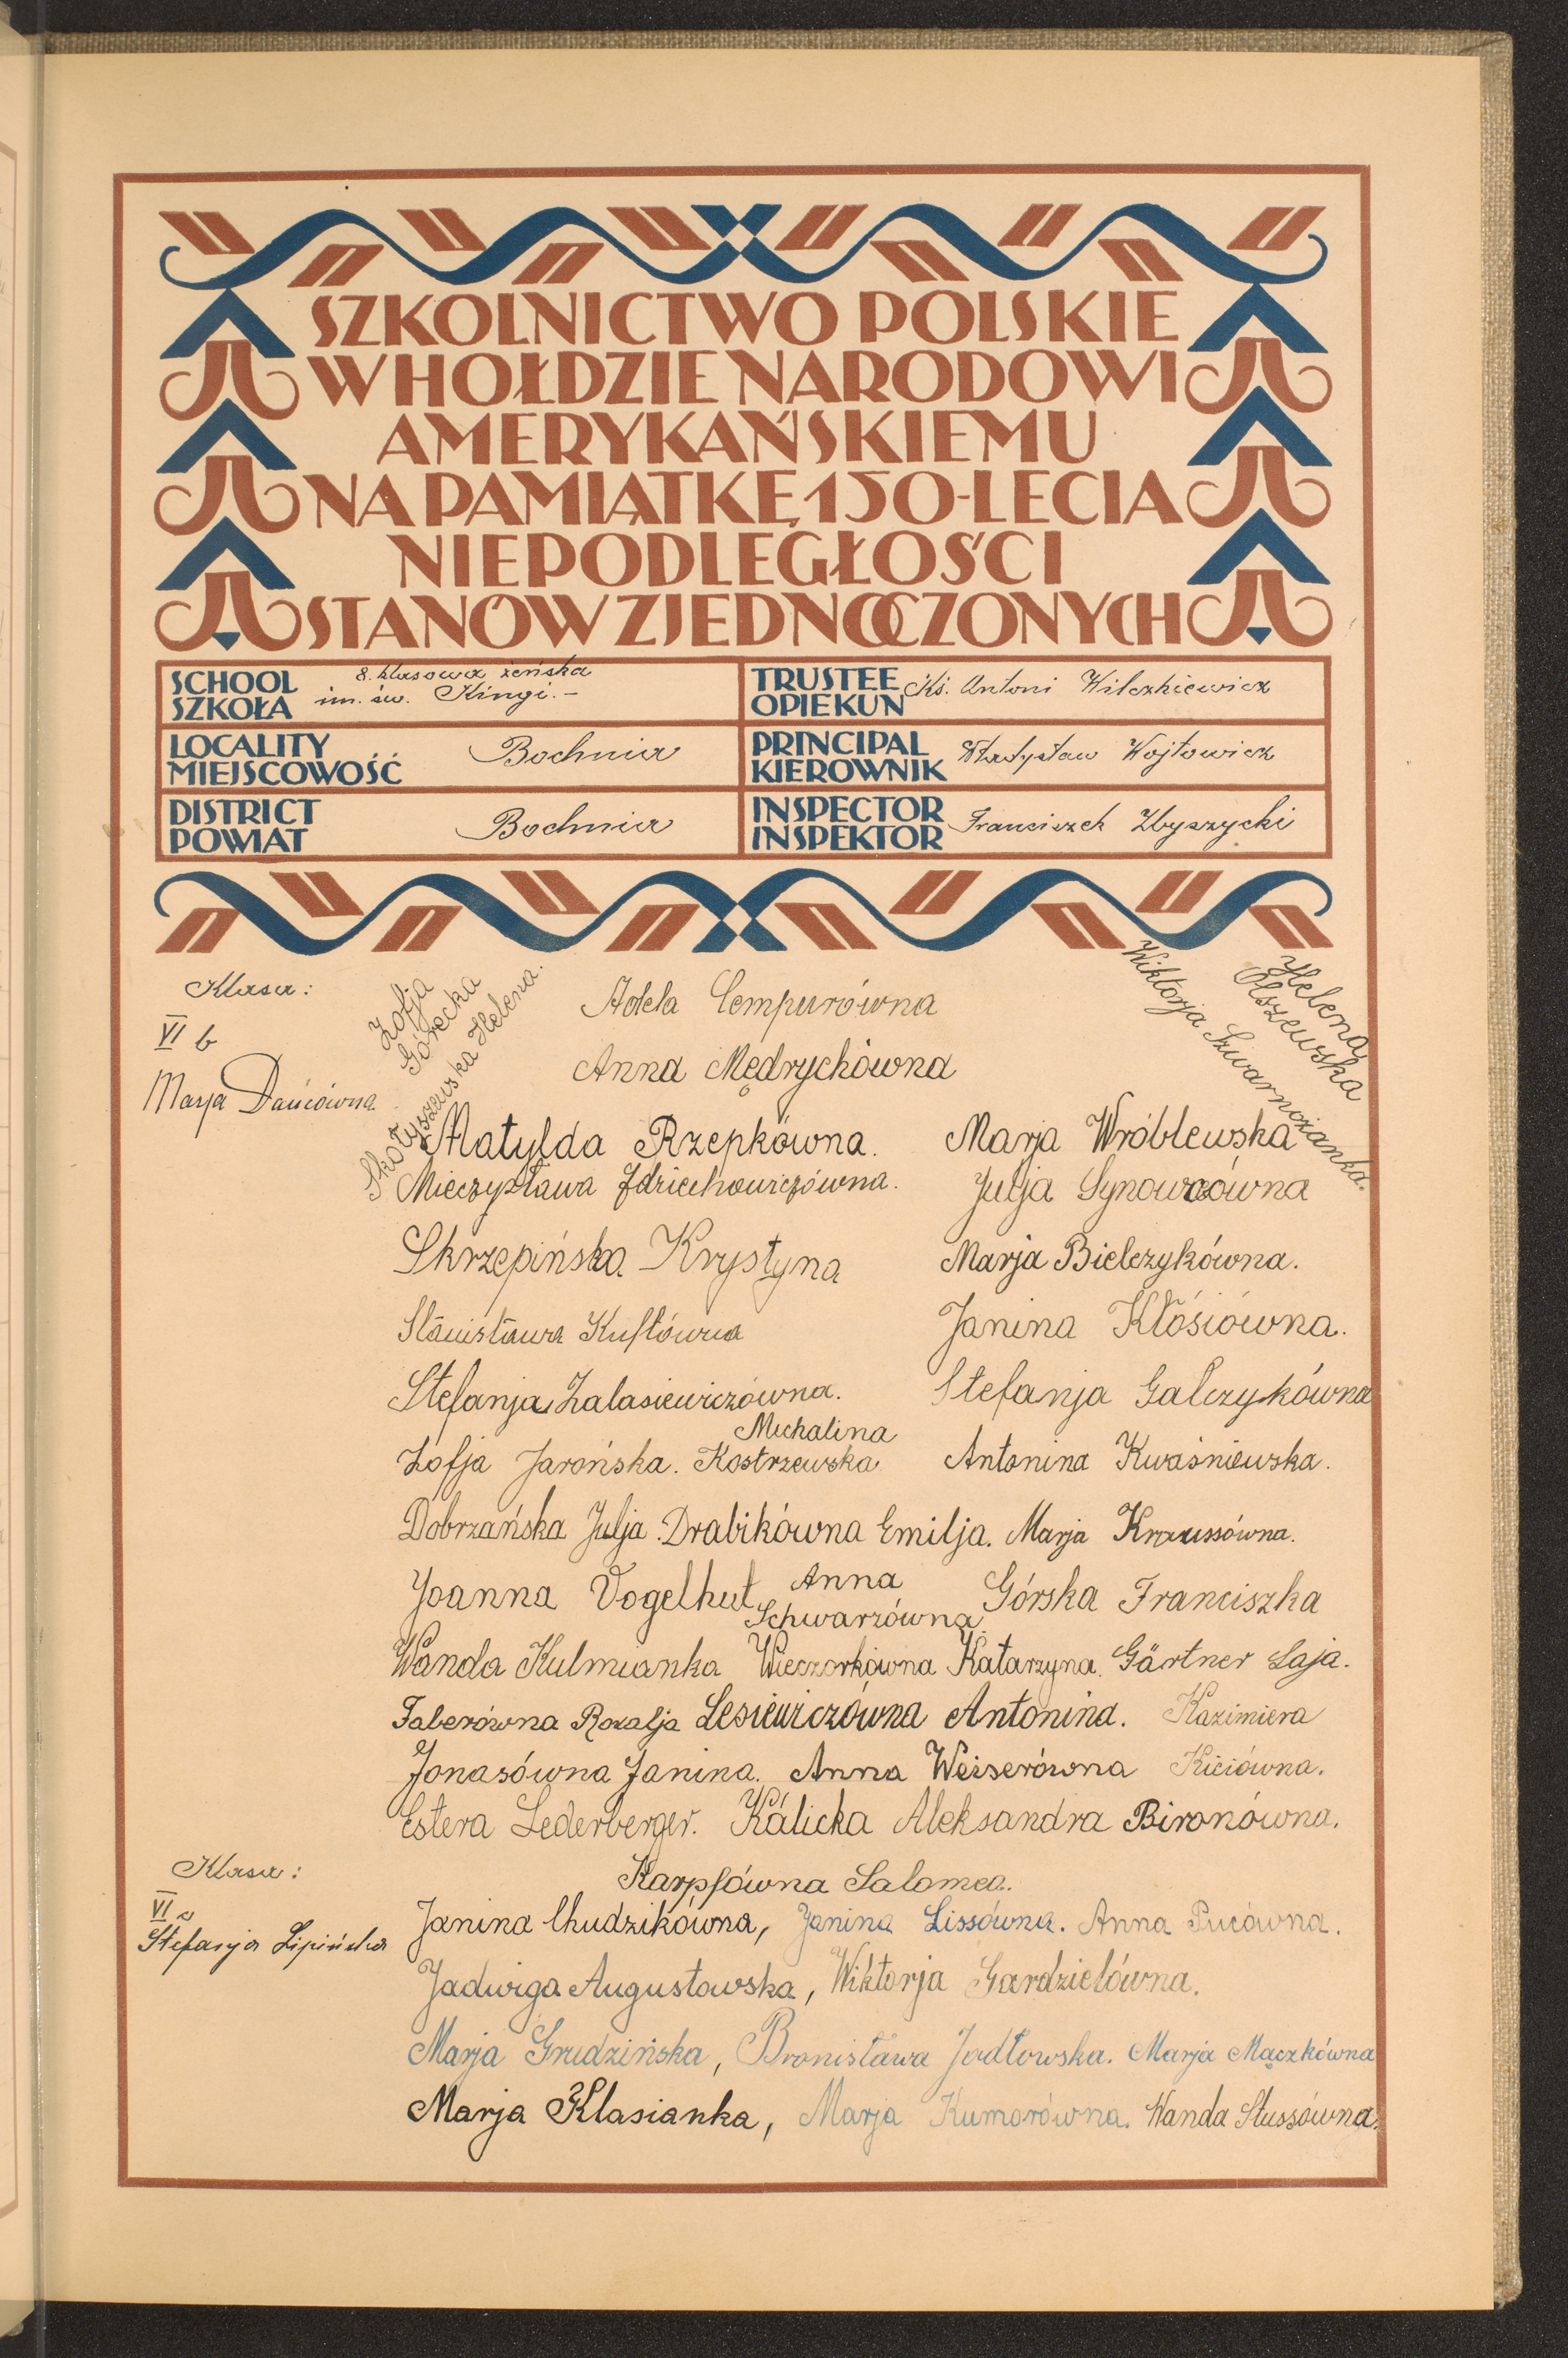 SZKOLNICTWO POLSKIE
W HOŁDZIE NARODOWI
AMERYKAŃSKIEMU
NA PAMIĄTKĘ 150-LECIA
NIEPODLEGŁOŚCI
STANÓW ZJEDNOCZONYCH
SCHOOL
SZKOŁA
8. klasowa żeńska
im. św. Kingi.-
TRUSTEE
OPIEKUN
Ks. Antoni Wilczkiewicz
LOCALITY
MIEJSCOWOŚĆ
Bochnia
PRINCIPAL
KIEROWNIK
Władysław Wojtowicz
DISTRICT
POWIAT
Bochnia
INSPECTOR
INSPEKTOR
Franciszek Zbyszycki
Klasa:
VI b
Marja Dańcówna
Zofja
Górecka
Skotyszewska Helena.
Adela Cempurówna
Anna Mędrychówna
Wiktorja Szwarnożanka.
Helena
Olszewska
Matylda Rzepkówna. Marja Wróblewska
Mieczysława Zdziechowiczówna. Julja Synowcówna
Skrzepińska Krystyna Marja Bielczykówna.
Stanisława Kustówna Janina Kłósiówna.
Stefanja Zalasiewiczówna. Stefanja Galczykówna
Zofja Jarońska. Michalina Kostrzewska Antonina Kwaśniewska.
Dobrzańska Julja. Drabikówna Emilja. Marja Kraussówna.
Joanna Vogelhut Anna Schwarzówna Górska Franciszka
Wanda Kulmianka Wieczorkówna Katarzyna. Gärtner Łaja.
Faberówna Rozalja Lesiewiczówna Antonina. Kazimiera
Jonasówna Janina. Anna Weiserówna Kiciówna.
Estera Lederberger. Kálicka Aleksandra Bironówna.
Karpfówna Salomea.
Klasa:
VI a
Stefanja Lipińska
Janina Chudzikówna, Janina Lissówna. Anna Pucówna.
Jadwiga Augustowska, Wiktorja Gardzielówna.
Marja Grudzińska, Bronisława Jodłowska. Marja Mączkówna
Marja Klasianka, Marja Kumorówna. Wanda Stussówna.